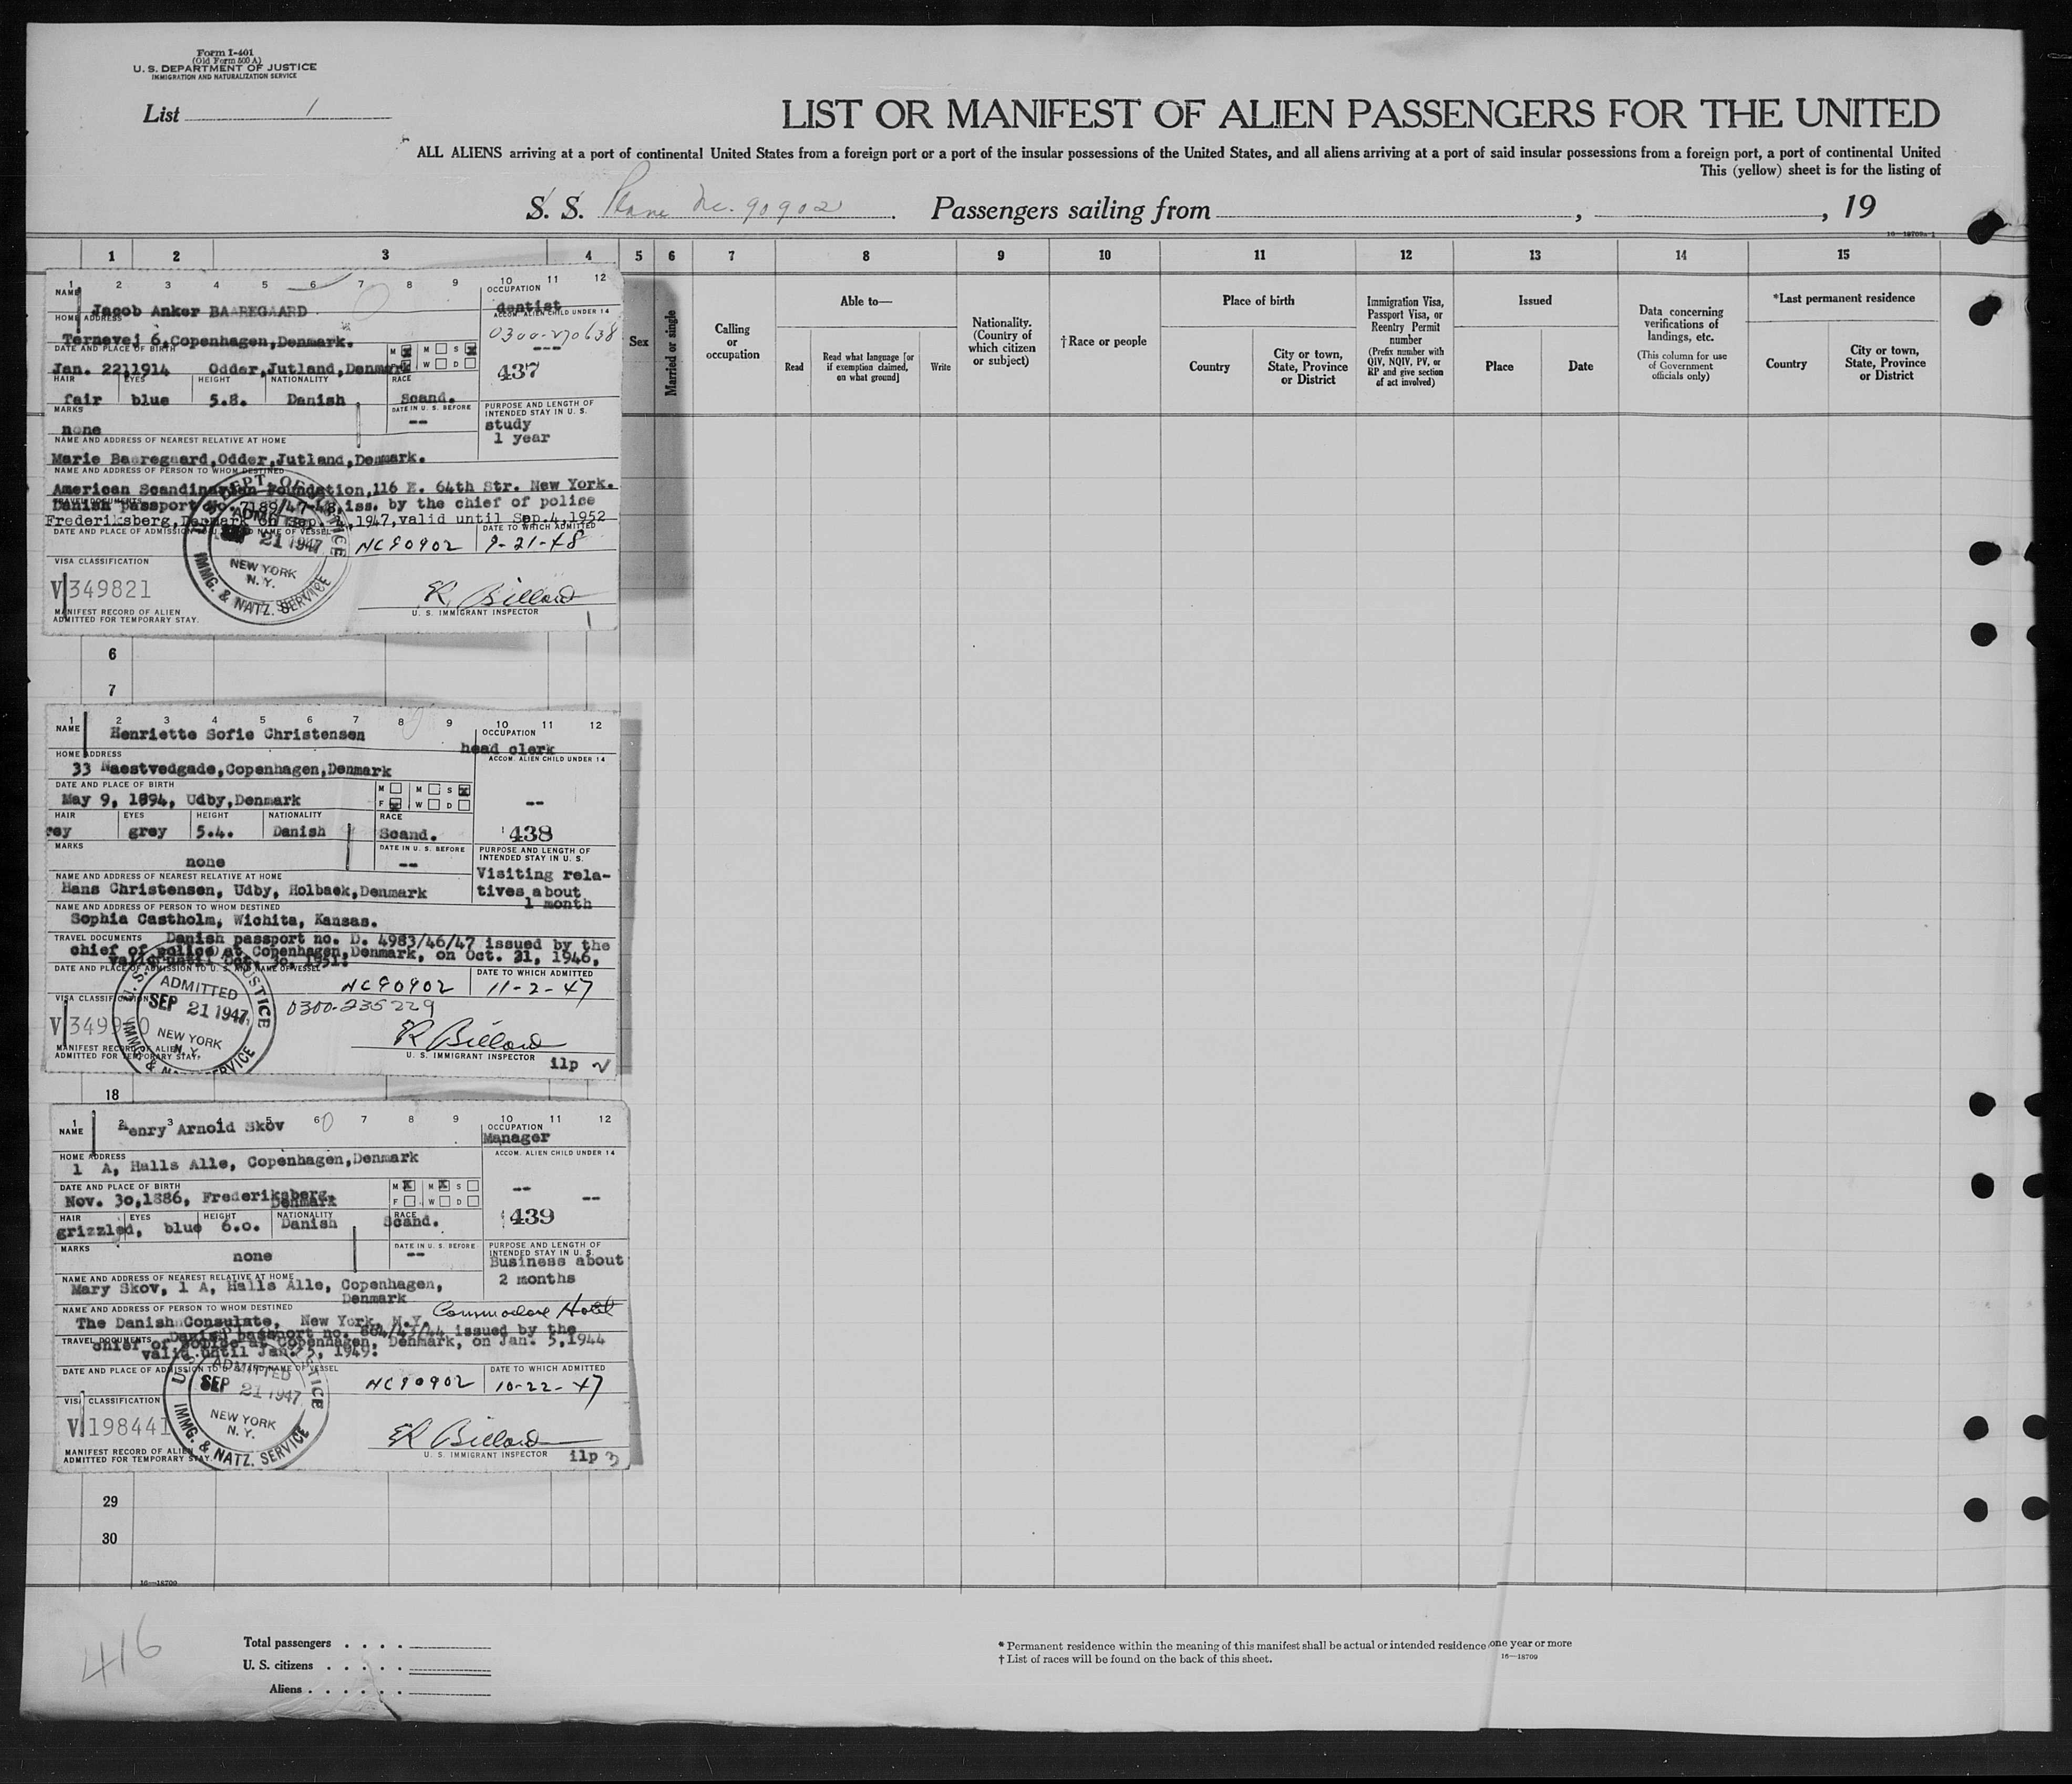 Form I-401
(Old Form 500 A)
U. S. DEPARTMENT OF JUSTICE
IMMIGRATION AND NATURALIZATION SERVICE
List 1
LIST OR MANIFEST OF ALIEN PASSENGERS FOR THE UNITED
ALL ALIENS arriving at a port of continental United States from a foreign port or a port of the insular possessions of the United States, and all aliens arriving at a port of said insular possessions from a foreign port, a port of continental United
This (yellow) sheet is for the listing of
S. S. Plane Nc. 90902 Passengers sailing from , , 19
16—18709a-1
1 2 3 4 5 6 7 8 9 10 11 12 13 14 15
Sex
Married or single
Calling or occupation
Able to—
Read
Read what language [or if exemption claimed, on what ground]
Write
Nationality. (Country of which citizen or subject)
†Race or people
Place of birth
Country
City or town, State, Province or District
Immigration Visa, Passport Visa, or Reentry Permit number
(Prefix number with QIV, NQIV, PV, or RP and give section of act involved)
Issued
Place
Date
Data concerning verifications of landings, etc.
(This column for use of Government officials only)
*Last permanent residence
Country
City or town, State, Province or District
1 2 3 4 5 6 7 8 9 10 11 12
NAME Jacob Anker BAAREGAARD
OCCUPATION dentist
HOME ADDRESS
ACCOM. ALIEN CHILD UNDER 14
0300-270638
Ternevej 6, Copenhagen, Denmark.
---
DATE AND PLACE OF BIRTH M M S
W D
Jan. 22, 1914 Odder, Jutland, Denmark
437
HAIR EYES HEIGHT NATIONALITY RACE
fair blue 5.8. Danish Scand.
MARKS DATE IN U. S. BEFORE
none --
PURPOSE AND LENGTH OF INTENDED STAY IN U. S.
study
1 year
NAME AND ADDRESS OF NEAREST RELATIVE AT HOME
Marie Baaregaard, Odder, Jutland, Denmark.
NAME AND ADDRESS OF PERSON TO WHOM DESTINED
American Scandinavian Foundation, 116 E. 64th Str. New York.
TRAVEL DOCUMENTS
Danish passport No. 7189/47-48, iss. by the chief of police
Frederiksberg, Denmark on Sep. 4, 1947, valid until Sep. 4, 1952
DATE AND PLACE OF ADMISSION TO U. S. AND NAME OF VESSEL
DATE TO WHICH ADMITTED
NC90902 9-21-48
SEP 21 1947
NEW YORK
N. Y.
IMMG. & NATZ. SERVICE
VISA CLASSIFICATION
V 349821
R. Billard
U. S. IMMIGRANT INSPECTOR
MANIFEST RECORD OF ALIEN
ADMITTED FOR TEMPORARY STAY.
1
6
7
1 2 3 4 5 6 7 8 9 10 11 12
NAME Henriette Sofie Christensen
OCCUPATION head clerk
HOME ADDRESS
ACCOM. ALIEN CHILD UNDER 14
33 Naestvedgade, Copenhagen, Denmark
DATE AND PLACE OF BIRTH M M S
F W D
May 9, 1894, Udby, Denmark
--
HAIR EYES HEIGHT NATIONALITY RACE
rey grey 5.4. Danish Scand.
438
MARKS DATE IN U. S. BEFORE
none --
PURPOSE AND LENGTH OF INTENDED STAY IN U. S.
Visiting rela-
tives about
1 month
NAME AND ADDRESS OF NEAREST RELATIVE AT HOME
Hans Christensen, Udby, Holbaek, Denmark
NAME AND ADDRESS OF PERSON TO WHOM DESTINED
Sophia Castholm, Wichita, Kansas.
TRAVEL DOCUMENTS Danish passport no. D. 4983/46/47 issued by the
chief of police at Copenhagen, Denmark, on Oct. 31, 1946,
valid until Oct. 30, 1951.
DATE AND PLACE OF ADMISSION TO U. S. AND NAME OF VESSEL
DATE TO WHICH ADMITTED
NC90902 11-2-47
ADMITTED
SEP 21 1947
NEW YORK
N. Y.
VISA CLASSIFICATION
0300-235229
R Billard
U. S. IMMIGRANT INSPECTOR
MANIFEST RECORD OF ALIEN
ADMITTED FOR TEMPORARY STAY.
ilp 2
18
1 2 3 4 5 6 7 8 9 10 11 12
NAME Henry Arnold Skov
OCCUPATION Manager
HOME ADDRESS
ACCOM. ALIEN CHILD UNDER 14
1 A, Halls Alle, Copenhagen, Denmark
DATE AND PLACE OF BIRTH M M S
F W D
Nov. 30, 1886, Frederiksberg,
Denmark
-- --
HAIR EYES HEIGHT NATIONALITY RACE
grizzled, blue 6.0. Danish Scand.
439
MARKS DATE IN U. S. BEFORE
none --
PURPOSE AND LENGTH OF INTENDED STAY IN U. S.
Business about
2 months
NAME AND ADDRESS OF NEAREST RELATIVE AT HOME
Mary Skov, 1 A, Halls Alle, Copenhagen,
Denmark
NAME AND ADDRESS OF PERSON TO WHOM DESTINED
Commodore Hotel
The Danish Consulate, New York, N.Y.
TRAVEL DOCUMENTS Danish passport no. 884/43/44 issued by the
chief of police at Copenhagen, Denmark, on Jan. 5, 1944
valid until Jan. 5, 1949.
DATE AND PLACE OF ADMISSION TO U. S. AND NAME OF VESSEL
DATE TO WHICH ADMITTED
NC90902 10-22-47
ADMITTED
SEP 21 1947
NEW YORK
N. Y.
IMMG. & NATZ. SERVICE
VISA CLASSIFICATION
V 198441
R Billard
U. S. IMMIGRANT INSPECTOR
MANIFEST RECORD OF ALIEN
ADMITTED FOR TEMPORARY STAY.
ilp 3
29
30
16—18709
416
Total passengers
U. S. citizens
Aliens
* Permanent residence within the meaning of this manifest shall be actual or intended residence one year or more
† List of races will be found on the back of this sheet.
16—18709